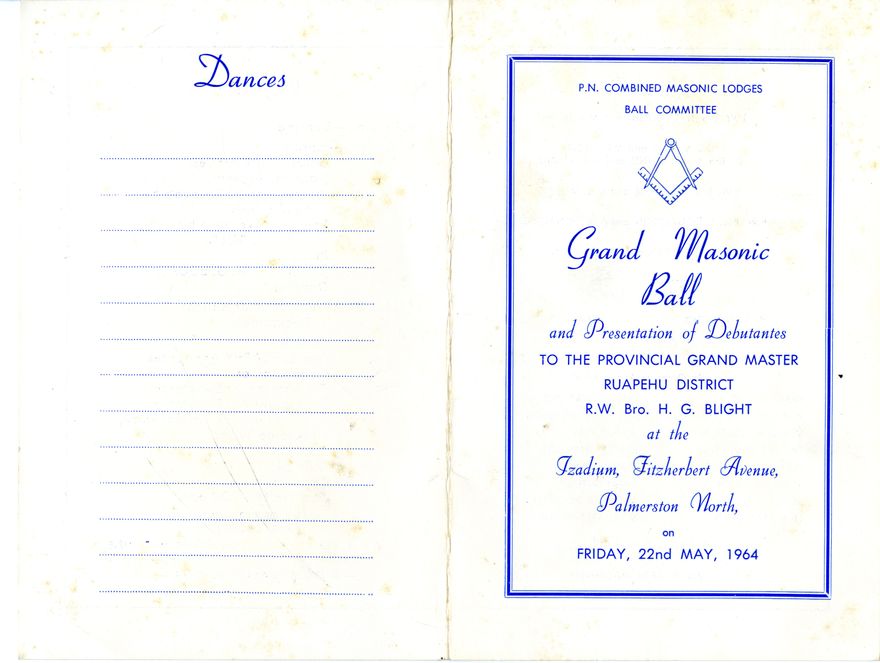 Dances
P.N. COMBINED MASONIC LODGES
BALL COMMITTEE
Grand Masonic
Ball
and Presentation of Debutantes
TO THE PROVINCIAL GRAND MASTER
RUAPEHU DISTRICT
R.W. Bro. H. G. BLIGHT
at the
Izadium, Fitzherbert Avenue,
Palmerston North,
on
FRIDAY, 22nd MAY, 1964